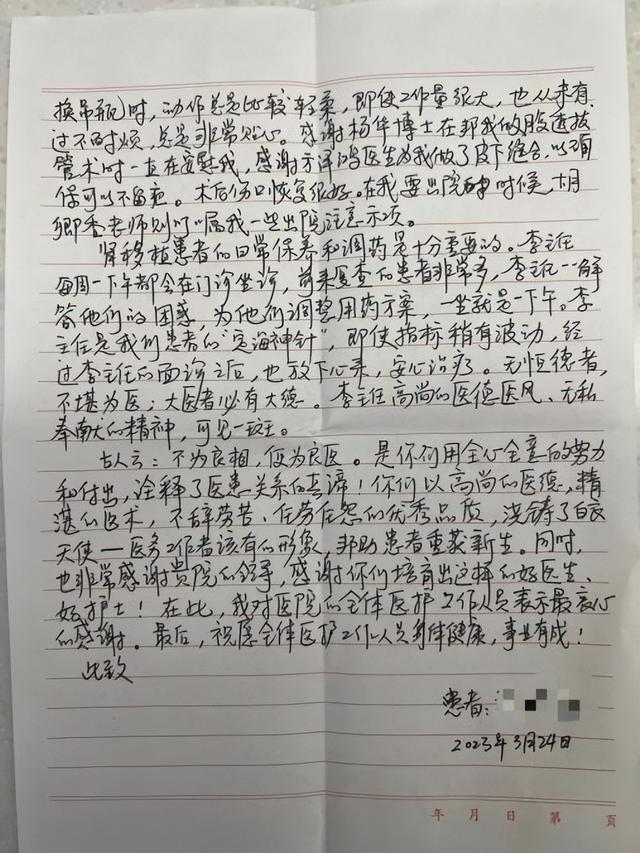 换吊瓶)时，动作总是比较轻柔，即使工作量很大，也从来有
过不耐烦，总是非常贴心。感谢杨华博士在帮我做股透拔
管术时一直在安慰我，感谢方泽鸿医生为我做了皮下缝合，以确
保可以不留疤。术后伤口恢复很好。在我要出院的时候，胡
卿香老师则叮嘱我一些出院注意事项。
肾移植患者的日常保养和调药是十分重要的。李主任
每周一下午都会在门诊坐诊，前来复查的患者非常多，李主任一一解
答他们的困惑，为他们调整用药方案，一坐就是一下午。李
主任是我们患者的"定海神针"，即使指标稍有波动，经
过李主任的面诊之后，也放下心来，安心治疗。无恒德者，
不堪为医；大医者必有大德。李主任高尚的医德医风、无私
奉献的精神，可见一斑。
古人云：不为良相，便为良医。是你们用全心全意的努力
和付出，诠释了医患关系的真谛！你们以高尚的医德，精
湛的医术，不辞劳苦、任劳任怨的优秀品质，浇铸了白衣
天使一医务工作者该有的形象，帮助患者重获新生。同时，
也非常感谢贵院的领导，感谢你们培育出这样的好医生、
好护士！在此，我对医院的全体医护工作人员表示最衷心
的感谢。最后，祝愿全体医护工作人员身体健康，事业有成！
此致
患者：
2023年3月24日
年 月 日 第 页